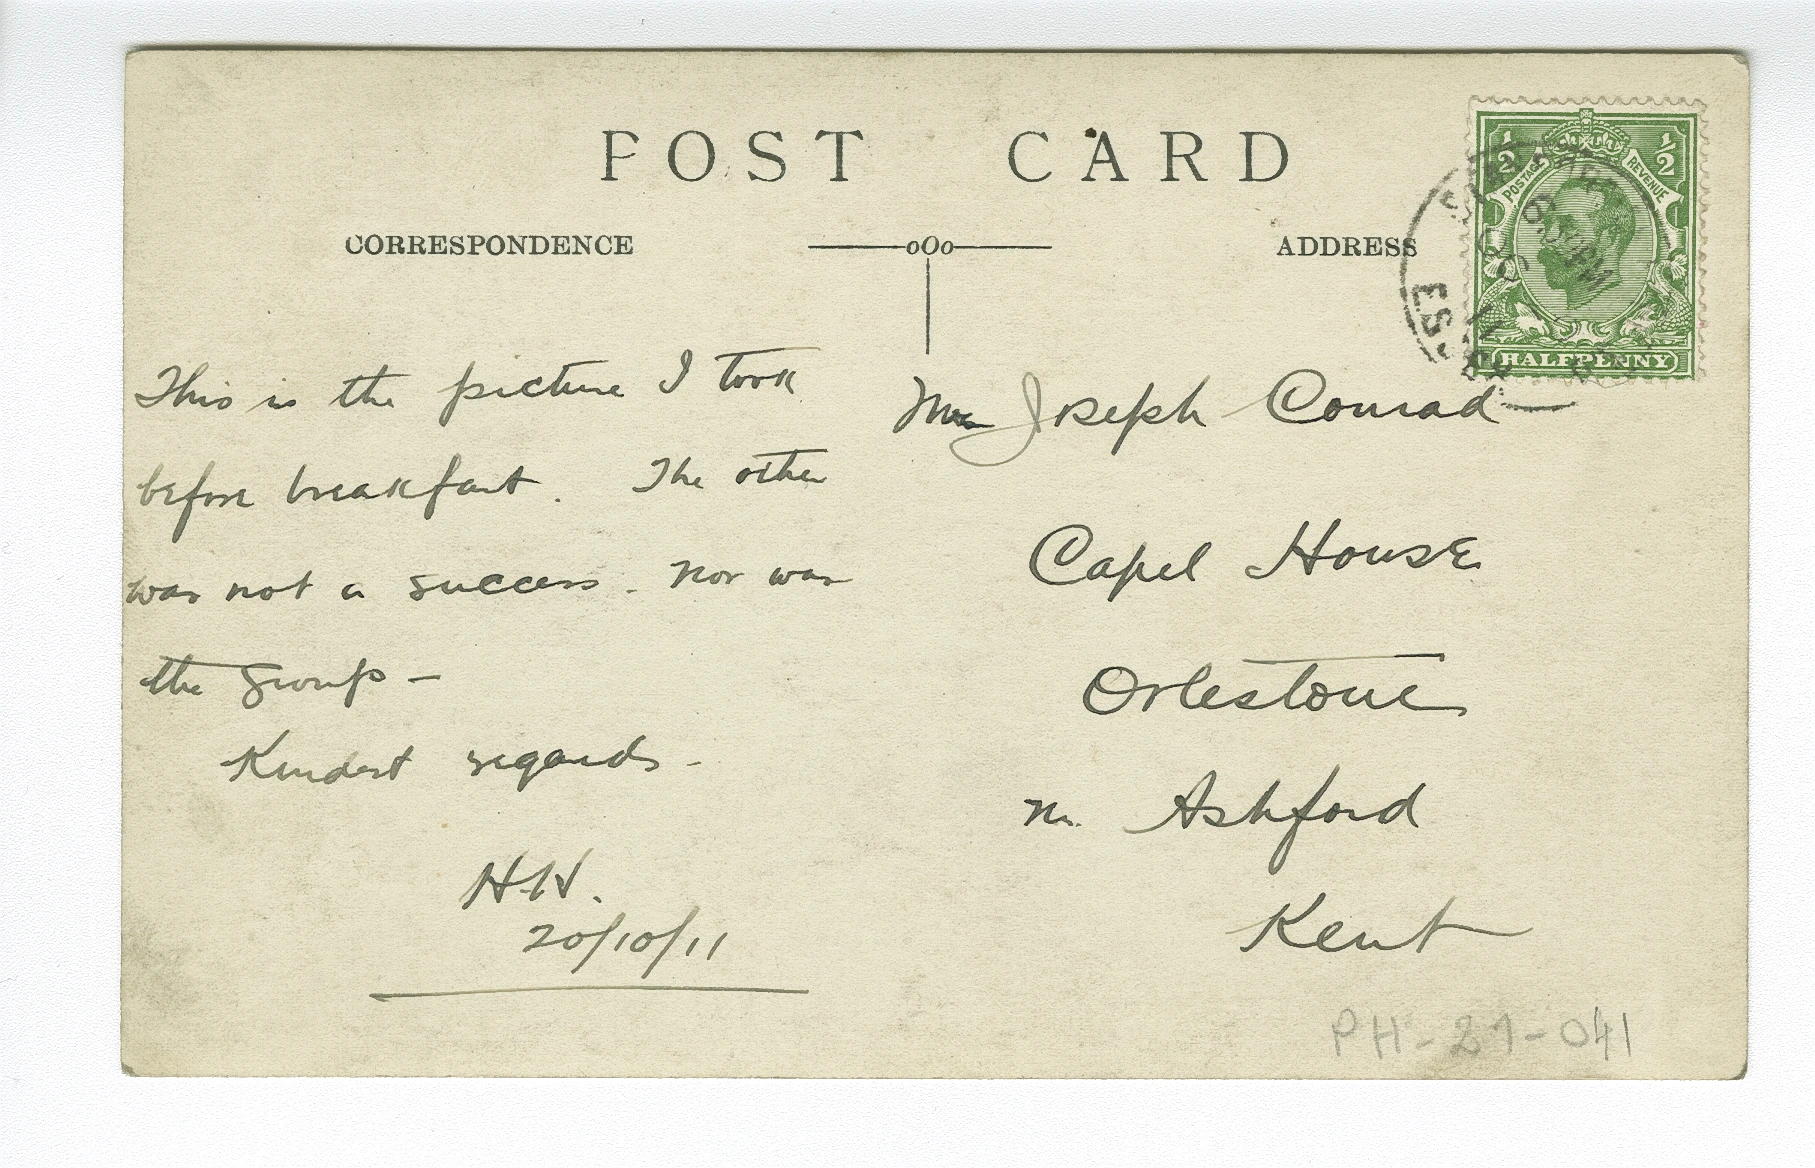 POST CARD
CORRESPONDENCE
oOo
ADDRESS
1/2 1/2
POSTAGE REVENUE
HALFPENNY
This is the picture I took
before breakfast. The other
was not a success. Nor was
the group —
Kindest regards.
H.H.
20/10/11
Mrs Joseph Conrad
Capel House
Orlestone
Nr. Ashford
Kent
PH-21-041